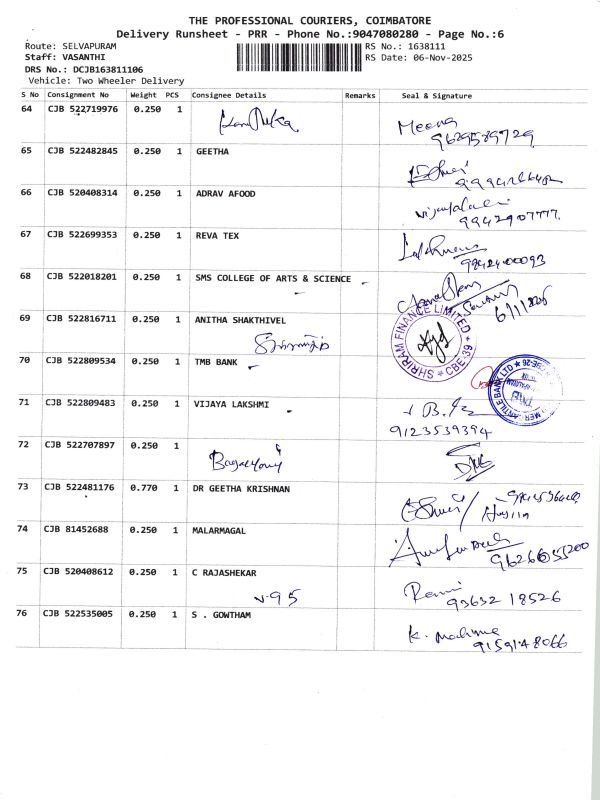 THE PROFESSIONAL COURIERS, COIMBATORE
Delivery Runsheet - PRR - Phone No.:9047080280 - Page No.:6
Route: SELVAPURAM
RS No.: 1638111
Staff: VASANTHI
RS Date: 06-Nov-2025
DRS No.: DCJB163811106
Vehicle: Two Wheeler Delivery
S No Consignment No Weight PCS Consignee Details Remarks Seal & Signature
64 CJB 522719976 0.250 1 Meena
9629589729
65 CJB 522482845 0.250 1 GEETHA
66 CJB 520408314 0.250 1 ADRAV AFOOD
9942907777
67 CJB 522699353 0.250 1 REVA TEX
68 CJB 522018201 0.250 1 SMS COLLEGE OF ARTS & SCIENCE
6/11/2025
69 CJB 522816711 0.250 1 ANITHA SHAKTHIVEL
SHRIRAM FINANCE LIMITED
CBE-39
70 CJB 522809534 0.250 1 TMB BANK
TMB
71 CJB 522809483 0.250 1 VIJAYA LAKSHMI
9123539394
72 CJB 522707897 0.250 1
73 CJB 522481176 0.770 1 DR GEETHA KRISHNAN
74 CJB 81452688 0.250 1 MALARMAGAL
75 CJB 520408612 0.250 1 C RAJASHEKAR
93632 18526
76 CJB 522535005 0.250 1 S . GOWTHAM
9159148066